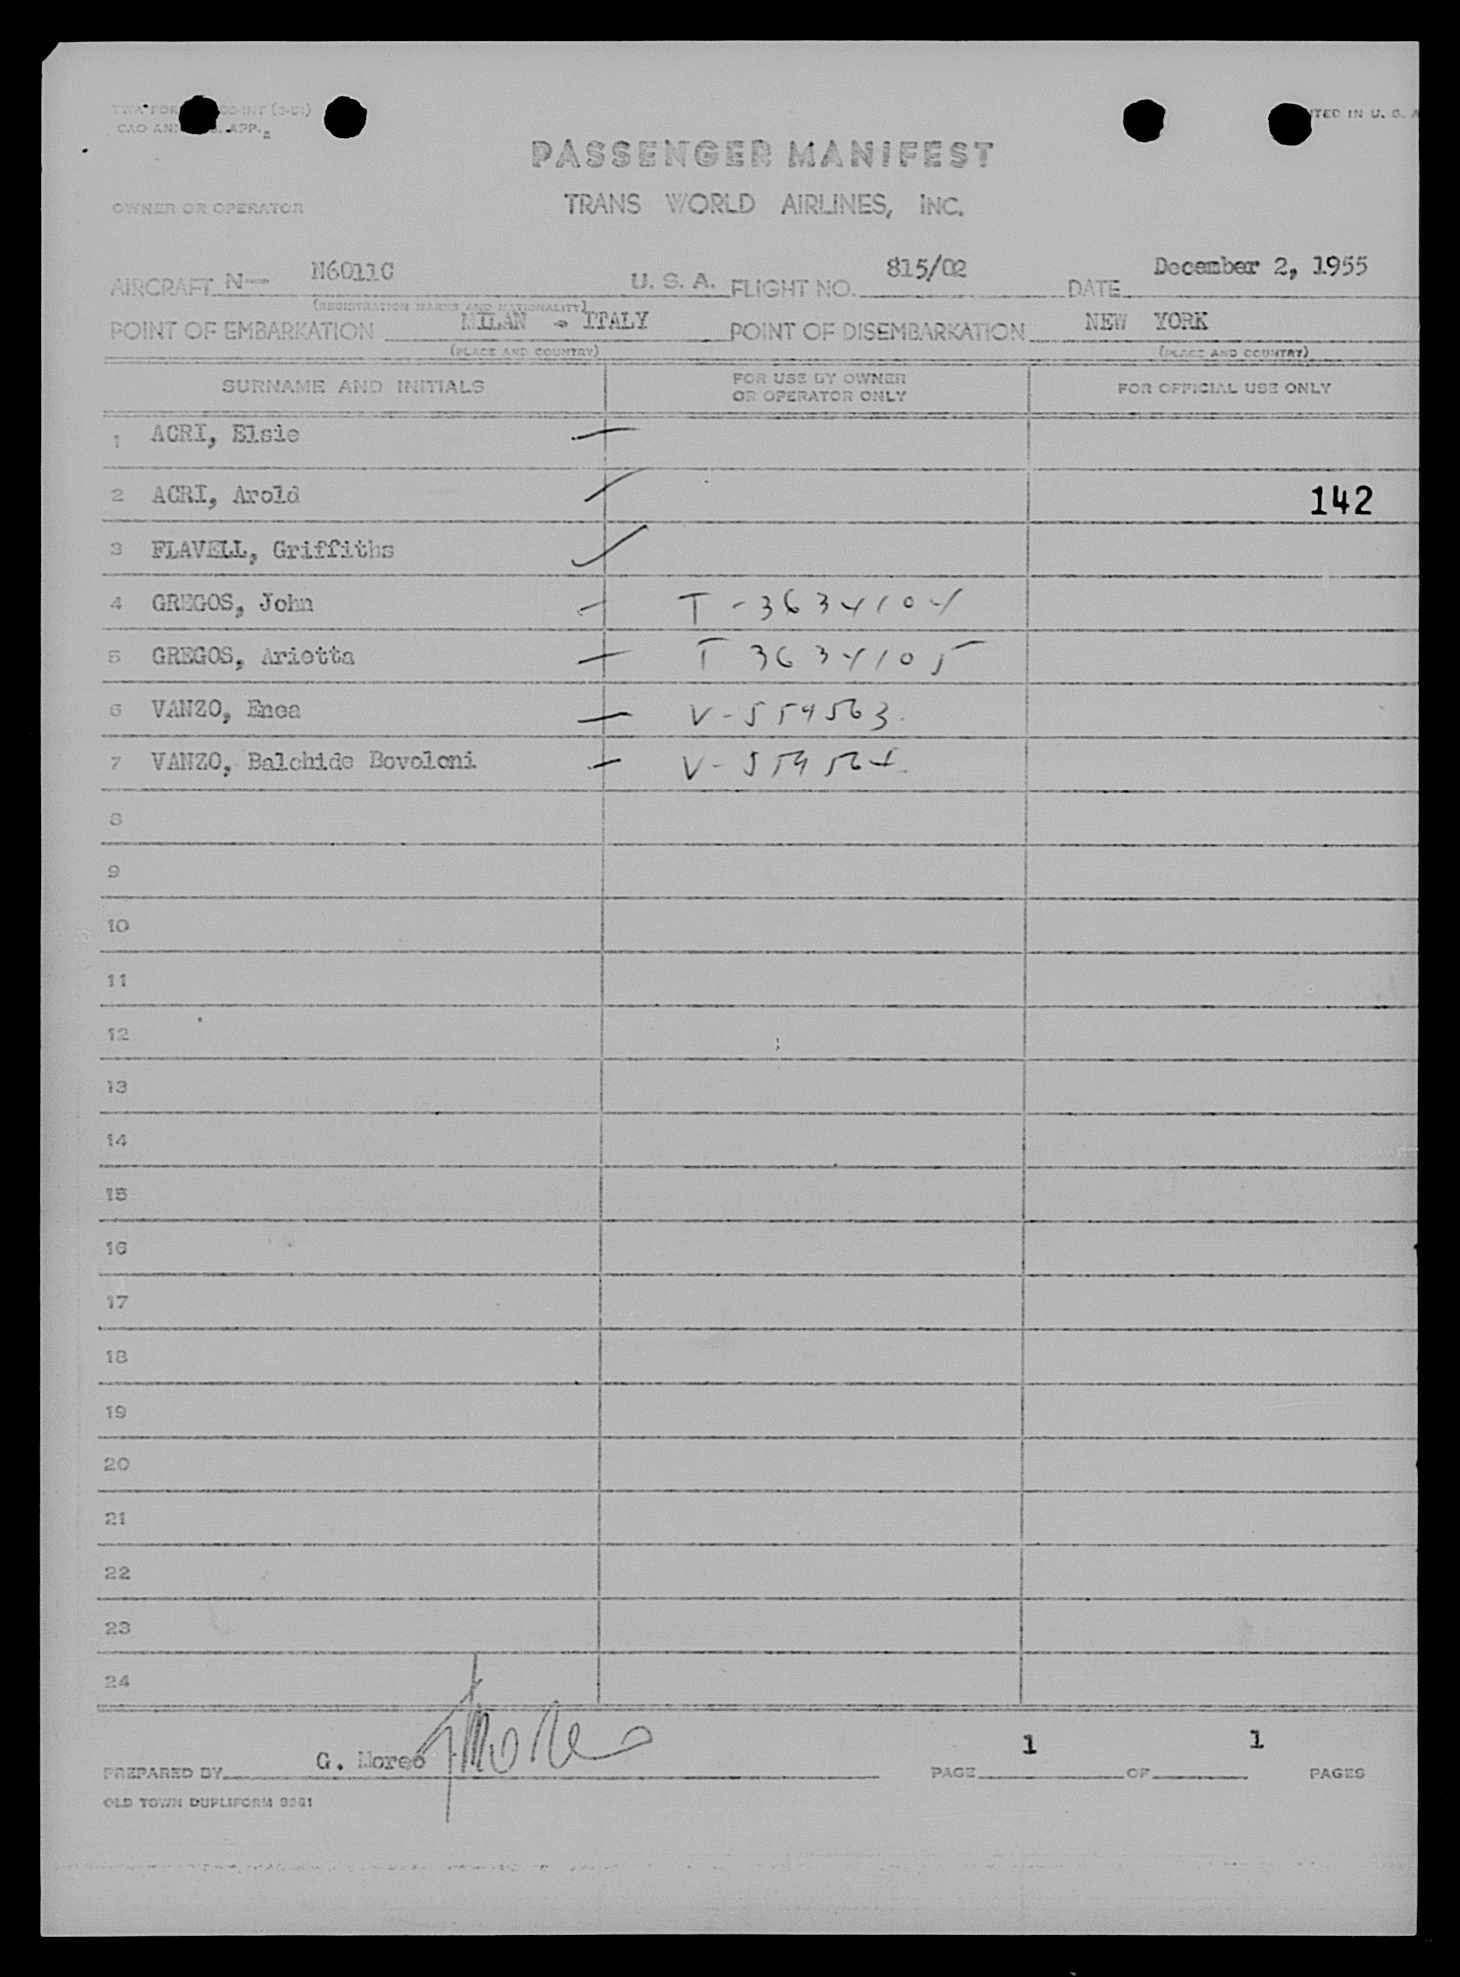 PASSENGER MANIFEST
TRANS WORLD AIRLINES, INC.
OWNER OR OPERATOR
AIRCRAFT N— N6011C U. S. A. FLIGHT NO. 815/02 DATE December 2, 1955
(REGISTRATION MARKS AND NATIONALITY)
POINT OF EMBARKATION MILAN - ITALY POINT OF DISEMBARKATION NEW YORK
(PLACE AND COUNTRY) (PLACE AND COUNTRY)
SURNAME AND INITIALS FOR USE BY OWNER OR OPERATOR ONLY FOR OFFICIAL USE ONLY
1 ACRI, Elsie
2 ACRI, Arold 142
3 FLAVELL, Griffiths
4 GREGOS, John T-3634104
5 GREGOS, Arietta T 3634105
6 VANZO, Enea V-554563
7 VANZO, Balchide Bovoloni V-554564
8
9
10
11
12
13
14
15
16
17
18
19
20
21
22
23
24
PREPARED BY G. Moreo PAGE 1 OF 1 PAGES
OLD TOWN DUPLIFORM